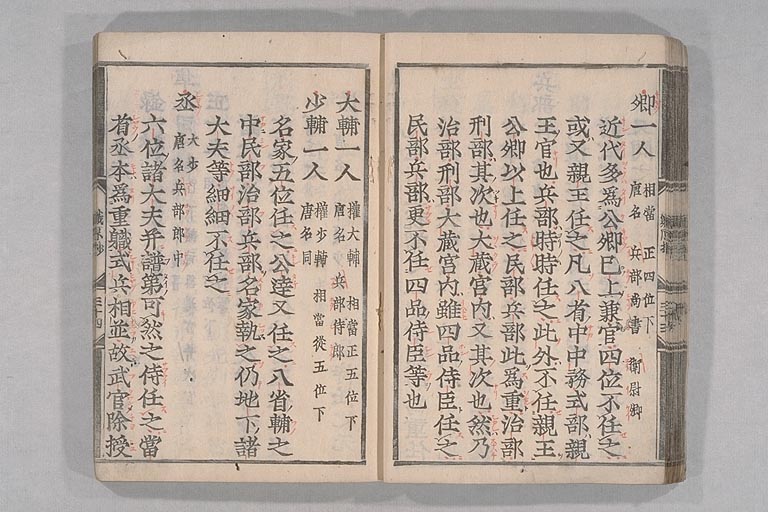 卿一人 相當 正四位下
唐名 兵部尚書 衛尉卿
近代多爲公卿已上兼官四位不任之
或又親王任之凡八省中中務式部親
王官也兵部時時任之此外不任親王
公卿以上任之民部兵部此爲重治部
刑部其次也大蔵宮内又其次也然乃
治部刑部大蔵宮内雖四品侍臣任之
民部兵部更不任四品侍臣等也
大輔一人 權大輔 相當正五位下
唐名 兵部侍郎
少輔一人 權少輔 相當從五位下
唐名同
名家五位任之公達又任之八省輔之
中民部治部兵部名家執之仍地下諸
大夫等細細不任之
丞 大少
唐名兵部郎中
六位諸大夫并譜第可然之侍任之當
省丞本爲重職式兵相並故武官除授